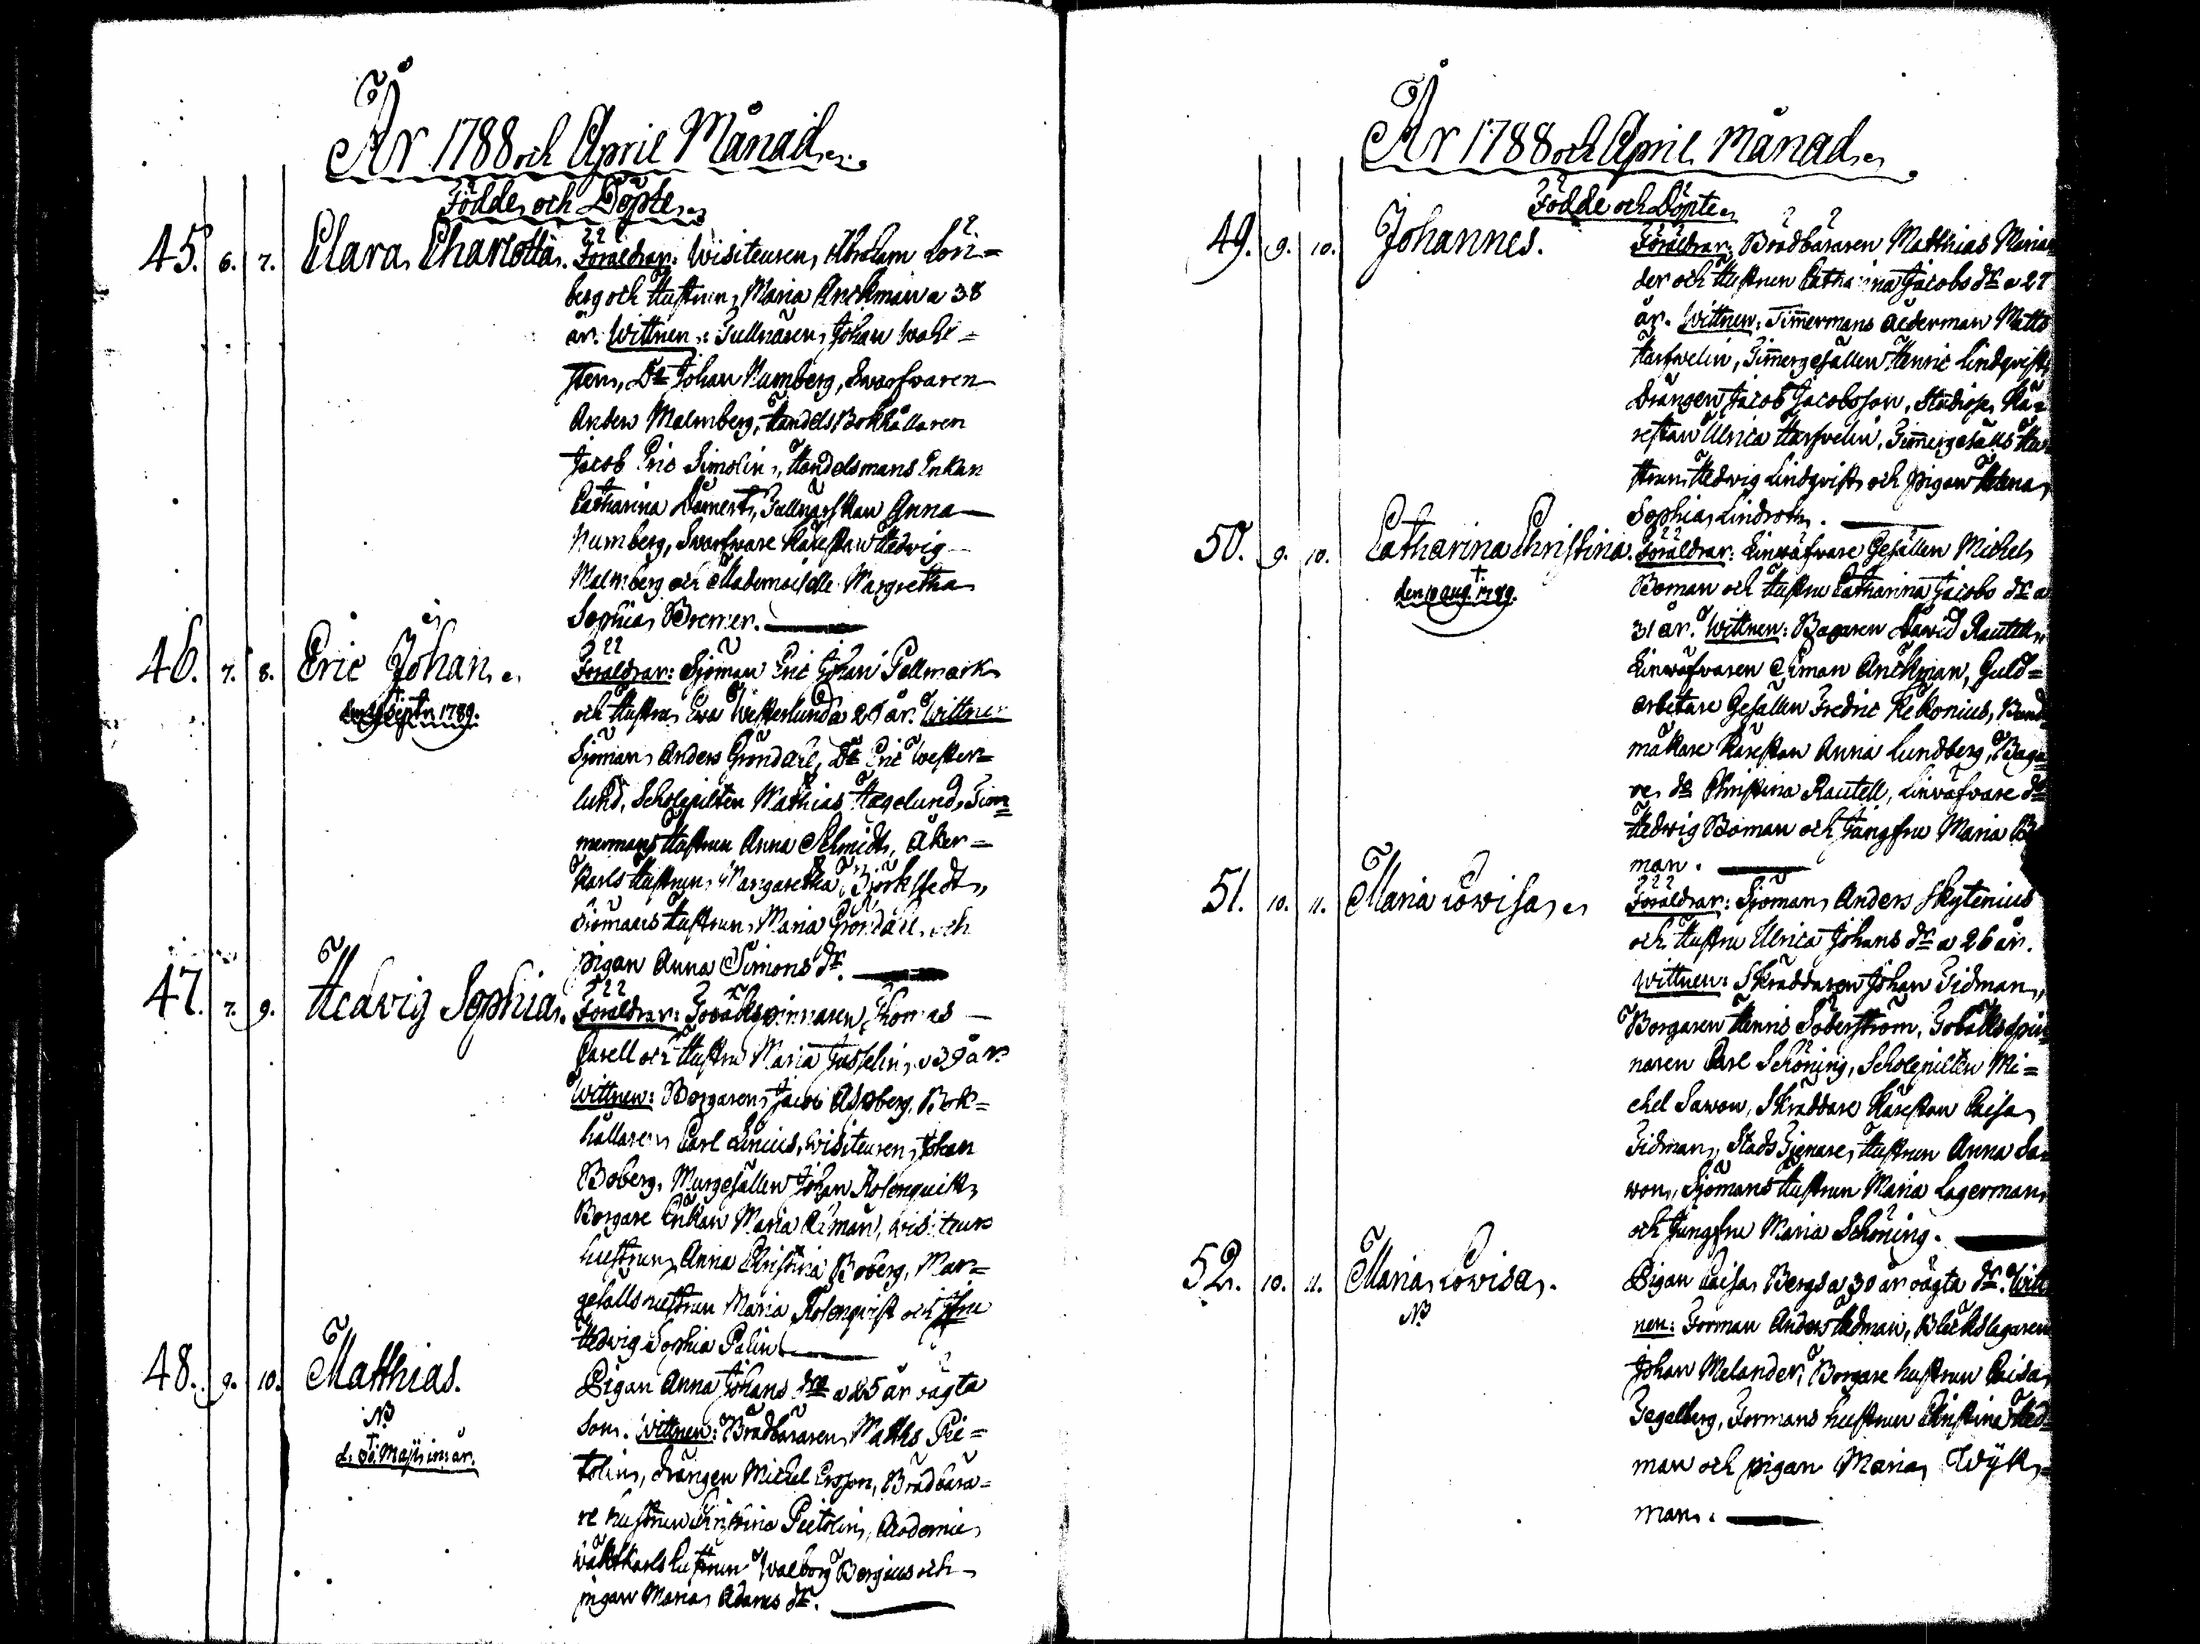 År 1788 och April Månad.
Födde och Döpte.
45. 6. 7. Clara Charlotta. Föräldrar: Wisiteuren Abraham Lön=
berg och Hustrun Maria Anckman a 38
år. Wittnen: Tullnären Johan Wahl=
sten, Do Johan Numberg, Swarfwaren
Anders Malmberg, Handels Bokhållaren
Jacob Eric Simolin, Handelsmans Enkan
Catharina Dömert, Tullnärskan Anna
Numberg, Swarfware Käreskan Hedwig
Malmberg och Mademoiselle Margretha
Sophia Bremer.
46. 7. 8. Eric Johan. Föräldrar: Sjöman Eric Johan Gellmark
Septr. 1789. och Hustru Ewa Westerlund a 25 år. Wittnen
Sjöman Anders Gröndahl, Do Eric Wester=
lund, Scholepilten Mathias Hagelund, Tim=
mermans Hustrun Anna Schmidt, Åker=
karls Hustrun Margaretha Björkstedt,
Sjömans Hustrun Maria Gröndahl och
pigan Anna Simons dr.
47. 7. 9. Hedvig Sophia. Föräldrar: Tobakspinnaren Thomas
Carell och Hustru Maria a 39 år
Wittnen: Borgaren Jacob Asberg, Bok=
hållaren Carl Lenius, Wisiteuren Johan
Boberg, Murgesällen Johan Rosenquist,
Borgare Enkan Maria Ekman, Wisiteurs
hustrun Anna Christina Boberg, Mur=
gesälls hustrun Maria Rosenqvist och Jfru
Hedwig Sophia Palin.
48. 9. 10. Matthias. Pigan Anna Johans dr a 25 år oägta
NB son. Wittnen: Brädbäraren Matths Pie=
d. Maji im: år. tolin, drängen Michel Ersson, Brädbära=
re hustrun Christina Pietolin, Academie
wäktkarls hustrun Walborg Bergius och
pigan Maria Adams dr.
År 1788 och April Månad.
Födde och Döpte.
49. 9. 10. Johannes. Föräldrar: Brädbäraren Matthias Marian
der och Hustrun Catharina Jacobs dr a 27
år. Wittnen: Timmermans Ålderman Matts
Harfwelin, Timmergesällen Henric Lindqvist,
Drängen Jacob Jacobsson, Studiosi Kä=
restan Ulrica Harfwelin, Timmergesälls Hu
strun Hedwig Lindqvist och pigan Helena
Sophia Lindroth.
50. 9. 10. Catharina Christina. Föräldrar: Linwäfware Gesällen Michel
den 10 Aug. 1789. Boman och Hustru Catharina Jacobs dr a
31 år. Wittnen: Bagaren David Rautell,
Linwäfwaren Simon Anckman, Guld=
arbetare Gesällen Fredric Kekonius, Band
makare Käreskan Anna Lundberg, Baga=
re do Christina Rautell, Linwäfware do
Hedwig Boman och Jungfru Maria Bo
man.
51. 10. 11. Maria Lowisa. Föräldrar: Sjöman Anders Skytenius
och Hustru Ulrica Johans dr a 26 år.
Wittnen: Skräddaren Johan Tidman,
Borgaren Henric Söderström, Tobaksspin
naren Carl Schöning, Scholepilten Mi=
chel Sawon, Skräddare Käreskan Caisa
Tidman, Stads Tjenare Hustrun Anna Sa=
won, Sjömans Hustrun Maria Lagerman
och Jungfru Maria Schöning.
52. 10. 11. Maria Lowisa. Pigan Caisa Bergs a 30 år oägta dr. Witt
NB nen: Forman Anders Hedman, Bläckslagaren
Johan Melander, Borgare hustrun Caisa
Tegelberg, Formans hustrun Christina Hed=
man och pigan Maria Wijk=
man.